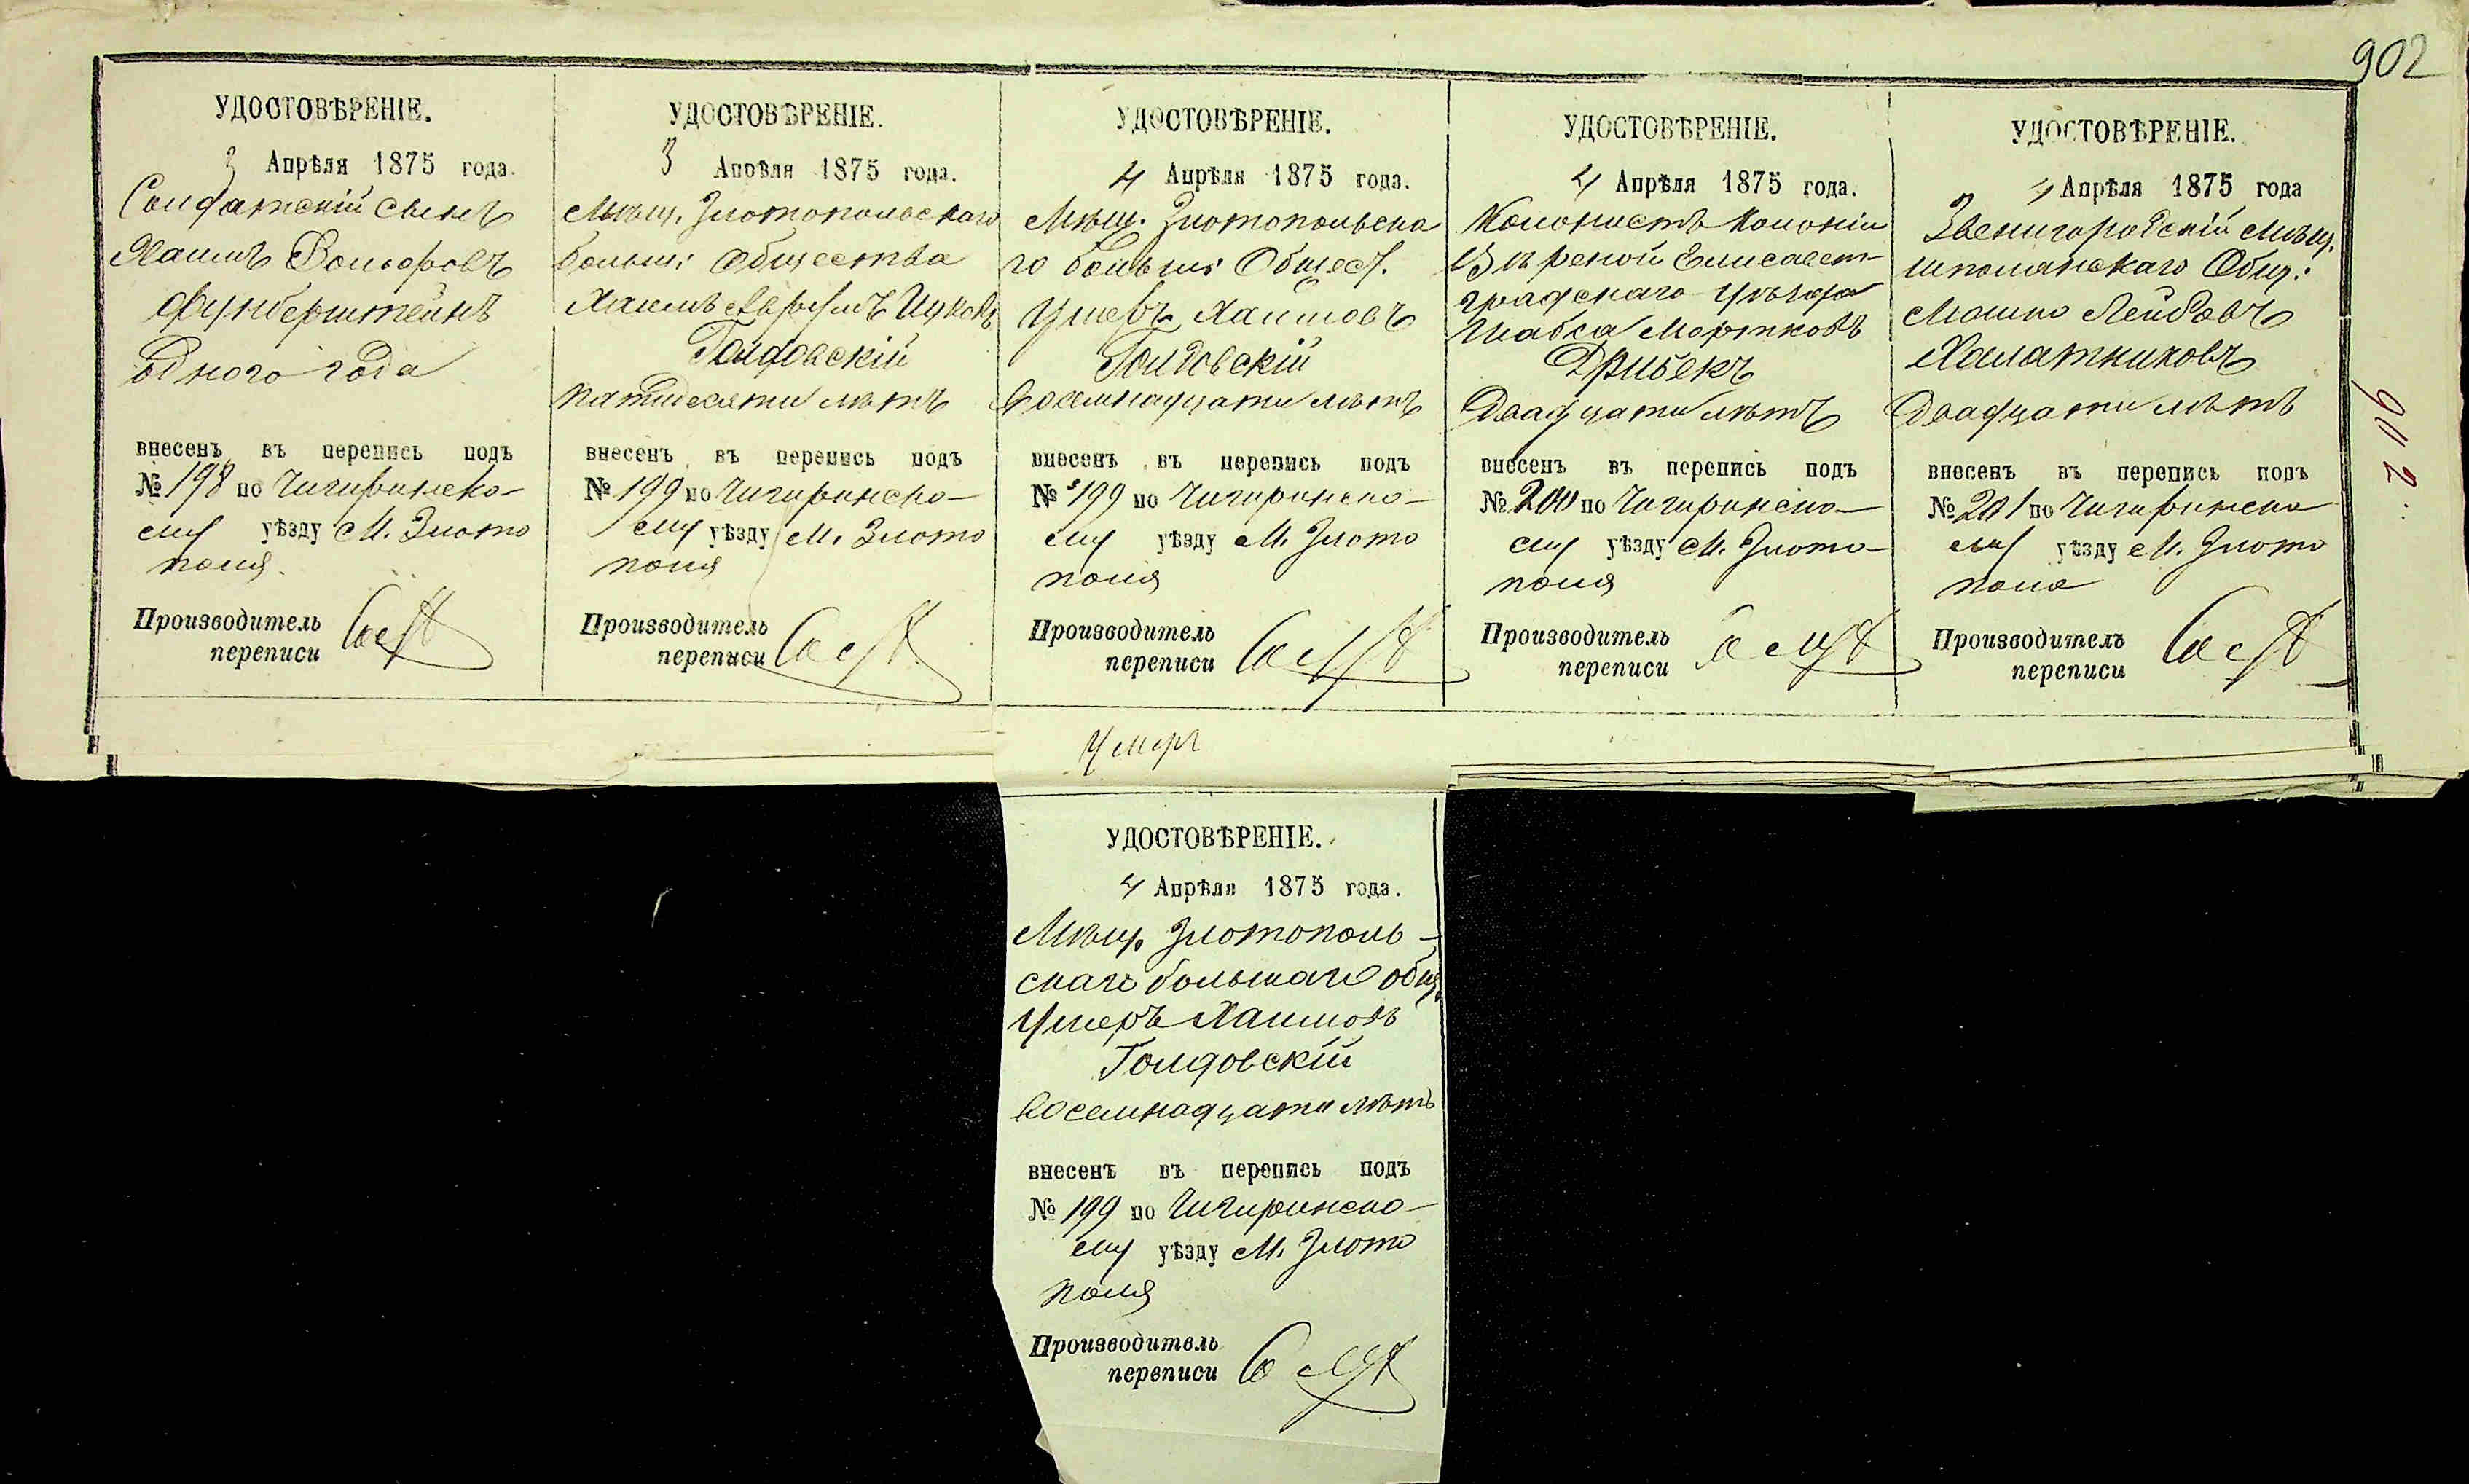 902
УДОСТОВѢРЕНІЕ.
3 Апрѣля 1875 года.
Солдатскій сынъ
Хаимъ
Фунберштейнъ
одного года
внесенъ въ перепись подъ
№ 198 по Чигиринско-
му уѣзду М. Злото
поля.
Производитель
переписи
УДОСТОВѢРЕНІЕ.
3 Апрѣля 1875 года.
Мѣщ. Златопольскаго
больш: Общества
Хаимъ Аврумъ Ицковъ
Голдовскій
пятидесяти лѣтъ
внесенъ въ перепись подъ
№ 199 по Чигиринско-
му уѣзду М. Злото
поля
Производитель
переписи
УДОСТОВѢРЕНІЕ.
4 Апрѣля 1875 года.
Мѣщ. Злотопольска
го больш: Общест.
Ушеръ Хаимовъ
Голдовскій
восемнадцати лѣтъ
внесенъ въ перепись подъ
№ 199 по Чигиринско-
му уѣзду М. Злото
поля
Производитель
переписи
УДОСТОВѢРЕНІЕ.
4 Апрѣля 1875 года.
Колонистъ Колоніи
Елисавет-
градскаго Уѣзда
Шабса Мортковъ
Дрибекъ
Двадцати лѣтъ
внесенъ въ перепись подъ
№ 200 по Чигиринско-
му уѣзду М. Злото-
поля
Производитель
переписи
УДОСТОВѢРЕНІЕ.
4 Апрѣля 1875 года
Звенигородскій Мѣщ.
шполянскаго Общ:
Мошко Лейбовъ
Халатниковъ
Двадцати лѣтъ
внесенъ въ перепись подъ
№ 201 по Чигиринско
му уѣзду М. Злото
поля
Производитель
переписи
Умеръ
УДОСТОВѢРЕНІЕ.
4 Апрѣля 1875 года.
Мѣщ. Злотополь-
скаго большаго общ.
Ушеръ Хаимовъ
Голдовскій
восемнадцати лѣтъ
внесенъ въ перепись подъ
№ 199 по Чигиринско-
му уѣзду М. Злото
поля
Производитель
переписи